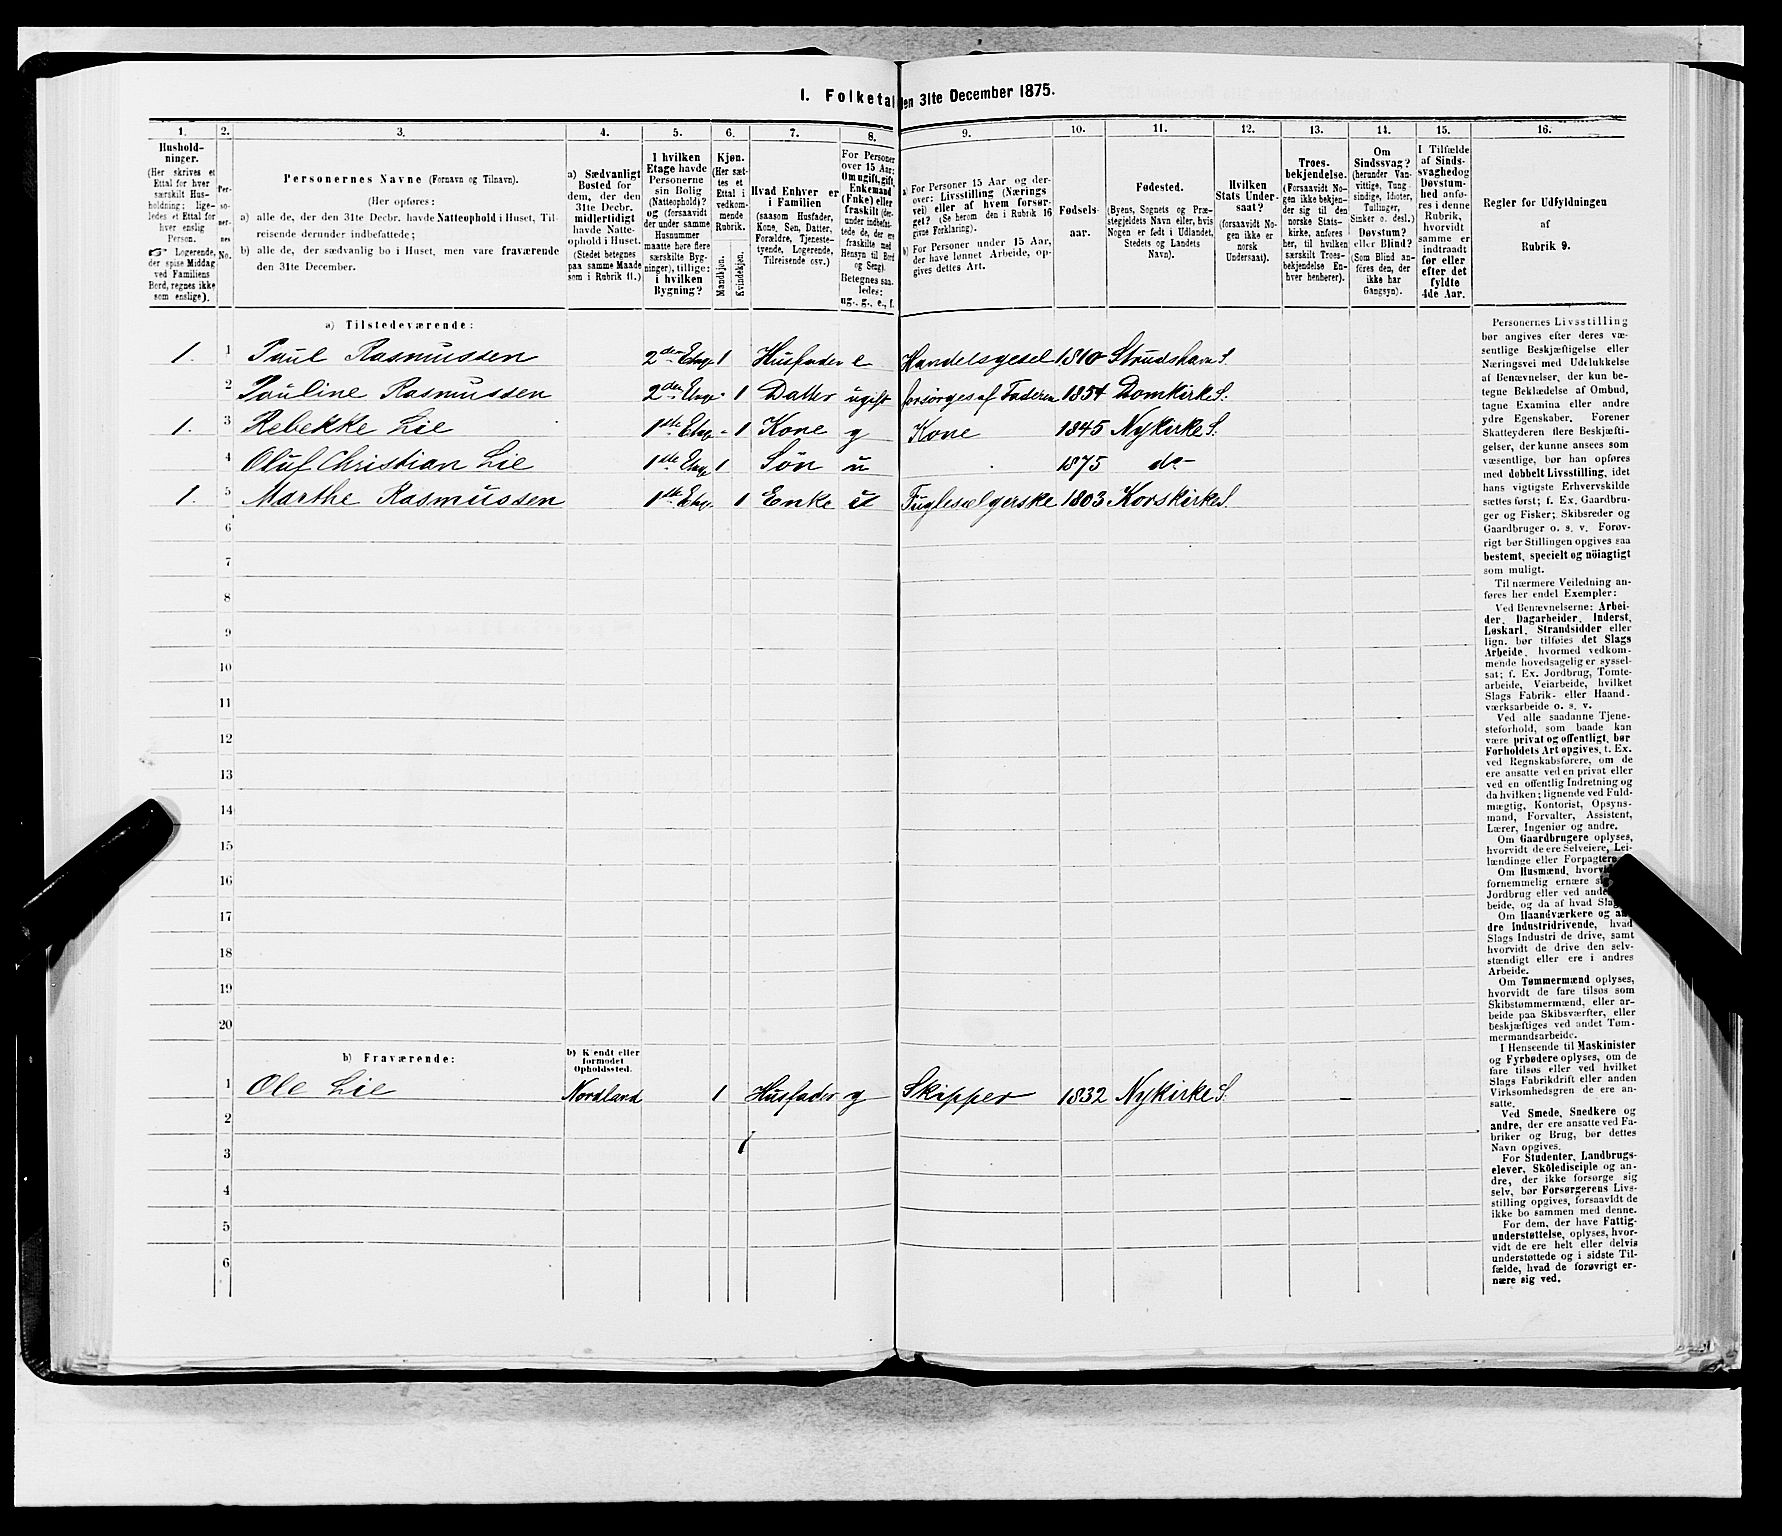 I. Folketal den 31te December 1875.
1. 2. 3. 4. 5. 6. 7. 8. 9. 10. 11. 12. 13. 14. 15. 16.
Hushold-
ninger.
(Her skrives et
Ettal for hver
særskilt Hus-
holdning; lige-
ledes et Ettal for
hver enslig
Person.
☞ Logerende,
der spise Middag
ved Familiens
Bord, regnes ikke
som enslige).
Per-
so-
ner-
nes
No.
Personernes Navne (Fornavn og Tilnavn).
(Her opføres:
a) alle de, der den 31te Decbr. havde Natteophold i Huset, Til-
reisende derunder indbefattede;
b) alle de, der sædvanlig bo i Huset, men vare fraværende
den 31te December.
a) Sædvanligt
Bosted for
dem, der den
31te Decbr.
midlertidigt
havde Natte-
ophold i Huset.
(Stedet betegnes
paa samme Maade
som i Rubrik 11.)
I hvilken
Etage havde
Personerne
sin Bolig
(Natteophold)?
og (forsaavidt
der under samme
Husnummer
maatte høre flere
særskilte Byg-
ninger), tillige:
i hvilken
Bygning?
Kjøn.
(Her sæt-
tes et
Ettal i
vedkom-
mende
Rubrik.
Mandkjøn.
Kvindekjøn.
Hvad Enhver er
i Familien
(saasom Husfader,
Kone, Søn, Datter,
Forældre, Tjeneste-
tyende, Logerende,
Tilreisende osv.)
For Personer
over 15 Aar:
Om ugift, gift,
Enkemand
(Enke) eller
fraskilt (der-
under indbefat-
tede de, der ere
fraskilte med
Hensyn til Bord
og Seng).
Betegnes saa-
ledes:
ug., g., e., f.
a) For Personer 15 Aar og der-
over: Livsstilling (Nærings
vei) eller af hvem forsør-
get? (Se herom den i Rubrik 16
givne Forklaring).
b) For Personer under 15 Aar,
der have lønnet Arbeide, op-
gives dettes Art.
Fødsels-
aar.
Fødested.
(Byens, Sognets og Præ-
stegjeldets Navn eller, hvis
Nogen er født i Udlandet,
Stedets og Landets
Navn).
Hvilken
Stats Under-
saat?
(forsaavidt No-
gen ikke er
norsk
Undersaat).
Troes-
bekjendelse.
(Forsaavidt No-
gen ikke bekjen-
der sig til den
norske Stats-
kirke, anføres
her, til hvilken
særskilt Troes-
bekjendelse En-
hver henhører).
Om
Sindssvag?
(herunder Van-
vittige, Tung-
sindige, Idioter,
Tullinger,
Sinker o. desl.)
Døvstum?
eller Blind?
(Som Blind an-
føres den, der
ikke har
Gangsyn).
I Tilfælde
af Sinds-
svaghed og
Døvstum-
hed anfø-
res i denne
Rubrik,
hvorvidt
samme er
indtraadt
før eller
efter det
fyldte
4de Aar.
Regler for Udfyldningen
af
Rubrik 9.
a) Tilstedeværende:
1. 1 Paul Rasmussen 2den Etage 1 Husfader e Handelsgesel 1810 Strudshavn S.
2 Pauline Rasmussen 2den Etage - 1 Datter ugift forsörges af Faderen 1854 Domkirke S.
1. 3 Rebekke Lie 1ste Etage - 1 Kone g Kone 1845 Nykirke S.
4 Oluf Christian Lie 1ste Etage 1 Sön u 1875 do-
1. 5 Marthe Rasmussen 1ste Etage 1 Enke Fuglesælgerske 1803 Korskirke S.
6
7
8
9
10
11
12
13
14
15
16
17
18
19
20
b) Fraværende:
b) Kjendt eller
formodet
Opholdssted.
1 Ole Lie Nordland 1 Husfader g Skipper 1832 Nykirke S.
2
3
4
5
6
Personernes Livsstilling
bør angives efter deres væ-
sentlige Beskjæftigelse eller
Næringsvei med Udelukkelse
af Benævnelser, der kun be-
tegne Beklædelse af Ombud,
tagne Examina eller andre
ydre Egenskaber. Forener
Skatteyderen flere Beskjæfti-
gelser, der kunne ansees som
væsentlige, bør han opføres
med dobbelt Livsstilling, idet
hans vigtigste Erhvervskilde
sættes først; f. Ex. Gaardbru-
ger og Fisker; Skibsreder og
Gaardbruger o. s. v. Forøv-
rigt bør Stillingen opgives saa
bestemt, specielt og nöiagtigt
som muligt.
Til nærmere Veiledning an-
føres her endel Exempler:
Ved Benævnelserne: Arbei-
der, Dagarbeider, Inderst,
Løskarl, Strandsidder eller
lign. bør tilføies det Slags
Arbeide, hvormed vedkom-
mende hovedsagelig er syssel-
sat; f. Ex. Jordbrug, Tomte-
arbeide, Veiarbeide, hvilket
Slags Fabrik- eller Haand-
værksarbeide o. s. v.
Ved alle saadanne Tjene-
steforhold, som baade kan
være privat og offentligt, bør
Forholdets Art opgives, t. Ex.
ved Regnskabsførere, om de
ere ansatte ved en privat eller
ved en offentlig Indretning og
da hvilken; lignende ved Fuld-
mægtig, Kontorist, Opsyns-
mand, Forvalter, Assistent,
Lærer, Ingeniør og andre.
Om Gaardbrugere oplyses,
hvorvidt de ere Selveiere, Lei-
lændinge eller Forpagtere.
Om Husmænd,
fornemmelig ernære
Jordbrug eller ved
beide, og da af hvad
Om Haandværkere og an-
dre Industridrivende, hvad
Slags Industri de drive, samt
hvorvidt de drive den selv-
stændigt eller ere i andres
Arbeide.
Om Tømmermænd oplyses,
hvorvidt de fare tilsøs som
Skibstømmermænd, eller ar-
beide paa Skibsværfter, eller
beskjæftiges ved andet Tøm-
mermandsarbeide.
I Henseende til Maskinister
og Fyrbødere oplyses, om de
fare tilsøs eller ved hvilket
Slags Fabrikdrift eller anden
Virksomhedsgren de ere an-
satte.
Ved Smede, Snedkere og
andre, der ere ansatte ved Fa-
briker og Brug, bør dettes
Navn opgives.
For Studenter, Landbrugs-
elever, Skôledisciple og an-
dre, der ikke forsørge sig
selv, bør Forsørgerens Livs-
stilling opgives, forsaavidt de
ikke bo sammen med denne.
For dem, der have Fattig-
understøttelse, oplyses, hvor-
vidt de ere helt eller delvis
understøttede og i sidste Til-
fælde, hvad de forøvrigt er-
nære sig ved.